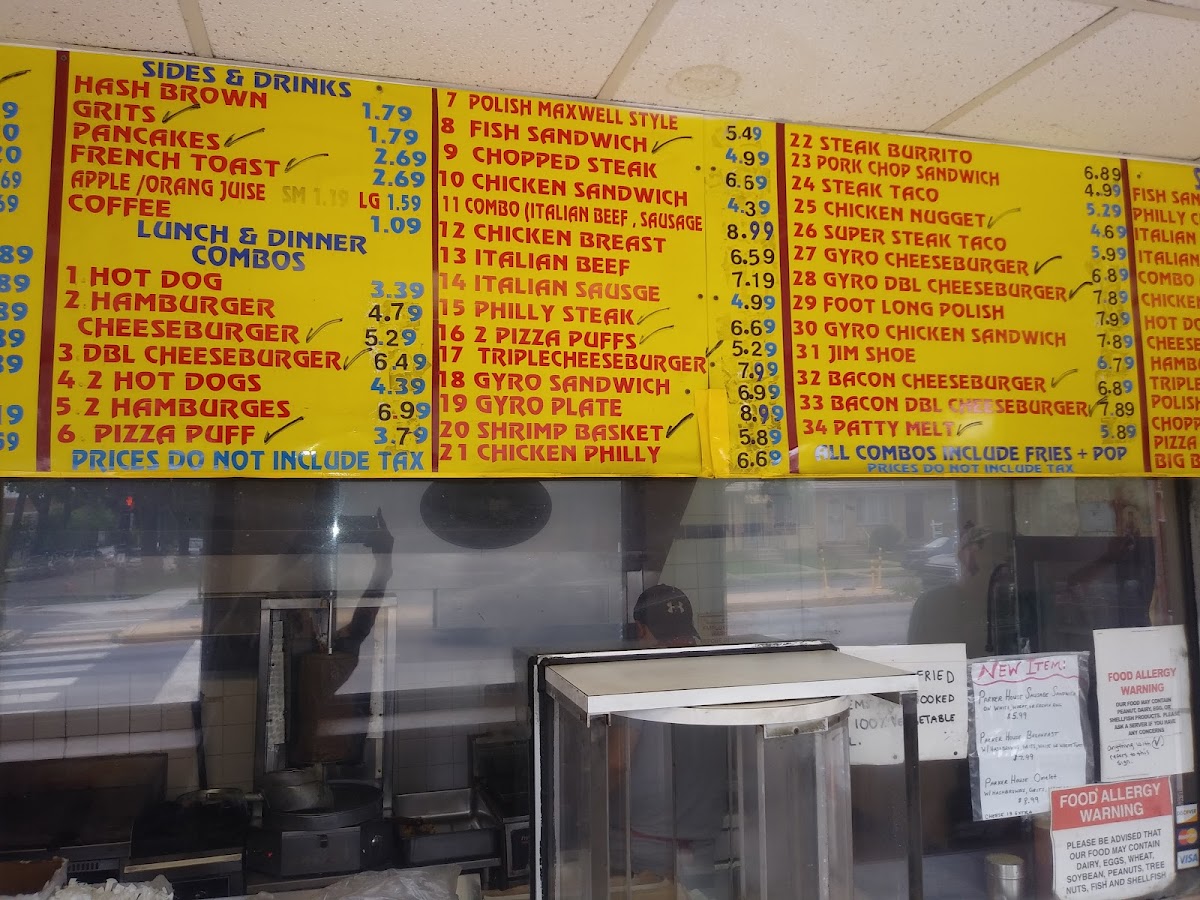 SIDES & DRINKS
HASH BROWN 1.79
GRITS 1.79
PANCAKES 2.69
FRENCH TOAST 2.69
APPLE /ORANG JUISE SM 1.19 LG 1.59
COFFEE 1.09
LUNCH & DINNER
COMBOS
1 HOT DOG 3.39
2 HAMBURGER 4.79
CHEESEBURGER 5.29
3 DBL CHEESEBURGER 6.49
4 2 HOT DOGS 4.39
5 2 HAMBURGES 6.99
6 PIZZA PUFF 3.79
PRICES DO NOT INCLUDE TAX
7 POLISH MAXWELL STYLE 5.49
8 FISH SANDWICH 4.99
9 CHOPPED STEAK 6.69
10 CHICKEN SANDWICH 4.39
11 COMBO (ITALIAN BEEF , SAUSAGE 8.99
12 CHICKEN BREAST 6.59
13 ITALIAN BEEF 7.19
14 ITALIAN SAUSGE 4.99
15 PHILLY STEAK 6.69
16 2 PIZZA PUFFS 5.29
17 TRIPLECHEESEBURGER 7.99
18 GYRO SANDWICH 6.99
19 GYRO PLATE 8.99
20 SHRIMP BASKET 5.89
21 CHICKEN PHILLY 6.69
22 STEAK BURRITO 6.89
23 PORK CHOP SANDWICH 4.99
24 STEAK TACO 5.29
25 CHICKEN NUGGET 4.69
26 SUPER STEAK TACO 5.99
27 GYRO CHEESEBURGER 6.89
28 GYRO DBL CHEESEBURGER 7.89
29 FOOT LONG POLISH 7.99
30 GYRO CHICKEN SANDWICH 7.89
31 JIM SHOE 6.79
32 BACON CHEESEBURGER 6.89
33 BACON DBL CHEESEBURGER 7.89
34 PATTY MELT 5.89
ALL COMBOS INCLUDE FRIES + POP
PRICES DO NOT INCLUDE TAX
FISH SAN
PHILLY C
ITALIAN
ITALIAN
COMBO
CHICKE
HOT DO
CHEESE
HAMB
TRIPL
POLIS
CHOP
PIZZA
BIG B
FRIED
COOKED
100% VEGETABLE
NEW ITEM:
PARKER HOUSE SAUSAGE SANDWICH
$5.99
PARKER HOUSE BREAKFAST
$7.99
PARKER HOUSE OMELET
W/HASHBROWNS, GRITS,
$8.99
CHEESE IS EXTRA
FOOD ALLERGY
WARNING
OUR FOOD MAY CONTAIN
PEANUT, DAIRY, EGG, OR
SHELLFISH PRODUCTS. PLEASE
ASK A SERVER IF YOU HAVE
ANY CONCERNS
anything with (✓)
refers to this
sign.
FOOD ALLERGY
WARNING
PLEASE BE ADVISED THAT
OUR FOOD MAY CONTAIN
DAIRY, EGGS, WHEAT,
SOYBEAN, PEANUTS, TREE
NUTS, FISH AND SHELLFISH
VISA